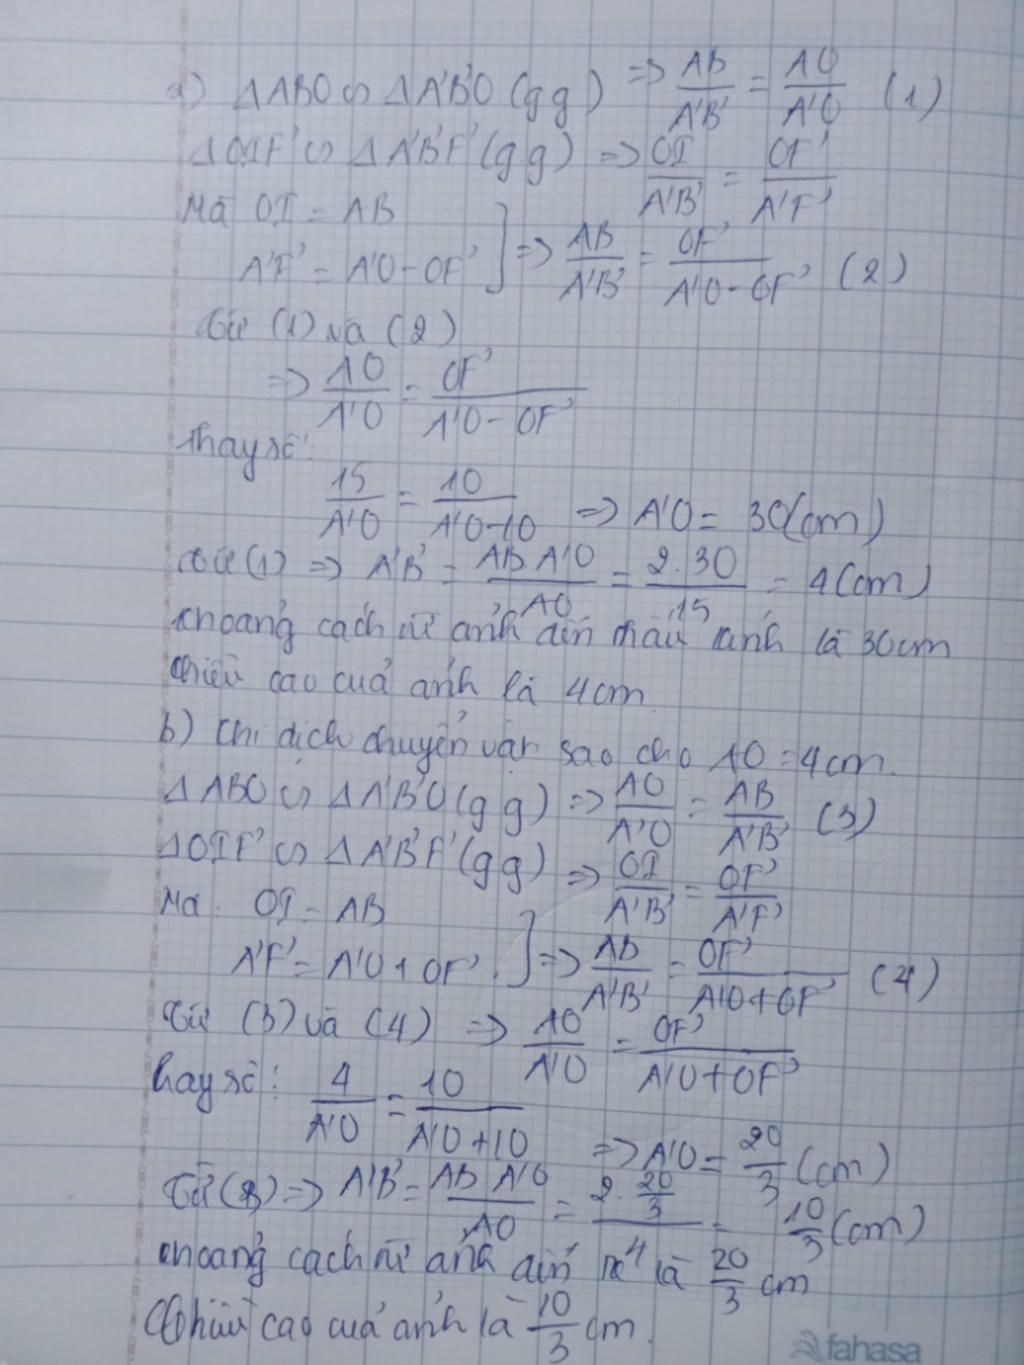 a) ΔABO ∽ ΔA'B'O (gg) => AB/A'B' = AO/A'O (1)
ΔOIF' ∽ ΔA'B'F' (gg) => OI/A'B' = OF'/A'F'
Mà OI = AB
A'F' = A'O - OF' ] => AB/A'B' = OF'/A'O - OF' (2)
Từ (1) và (2)
=> AO/A'O = OF'/A'O - OF'
Thay số:
15/A'O = 10/A'O-10 => A'O = 30(cm)
Từ (1) => A'B' = AB.A'O/AO = 2.30/15 = 4(cm)
khoảng cách từ ảnh đến ảnh là 30cm
chiều cao cuả ảnh là 4cm.
b) Khi dịch chuyển vật sao cho AO = 4cm.
ΔABO ∽ ΔA'B'O (gg) => AO/A'O = AB/A'B' (3)
ΔOIF' ∽ ΔA'B'F' (gg) => OI/A'B' = OF'/A'F'
Mà OI = AB
A'F' = A'O + OF' ] => AB/A'B' = OF'/A'O+OF' (4)
Từ (3) và (4) => AO/A'O = OF'/A'O+OF'
hay số: 4/A'O = 10/A'O+10 => A'O = 20/3 (cm)
Từ (3) => A'B' = AB A'O/AO = 2.20/3/4 = 10/3 (cm)
khoảng cách từ ảnh đến là 20/3 cm
Chiều cao cuả ảnh là 10/3 cm.
fahasa